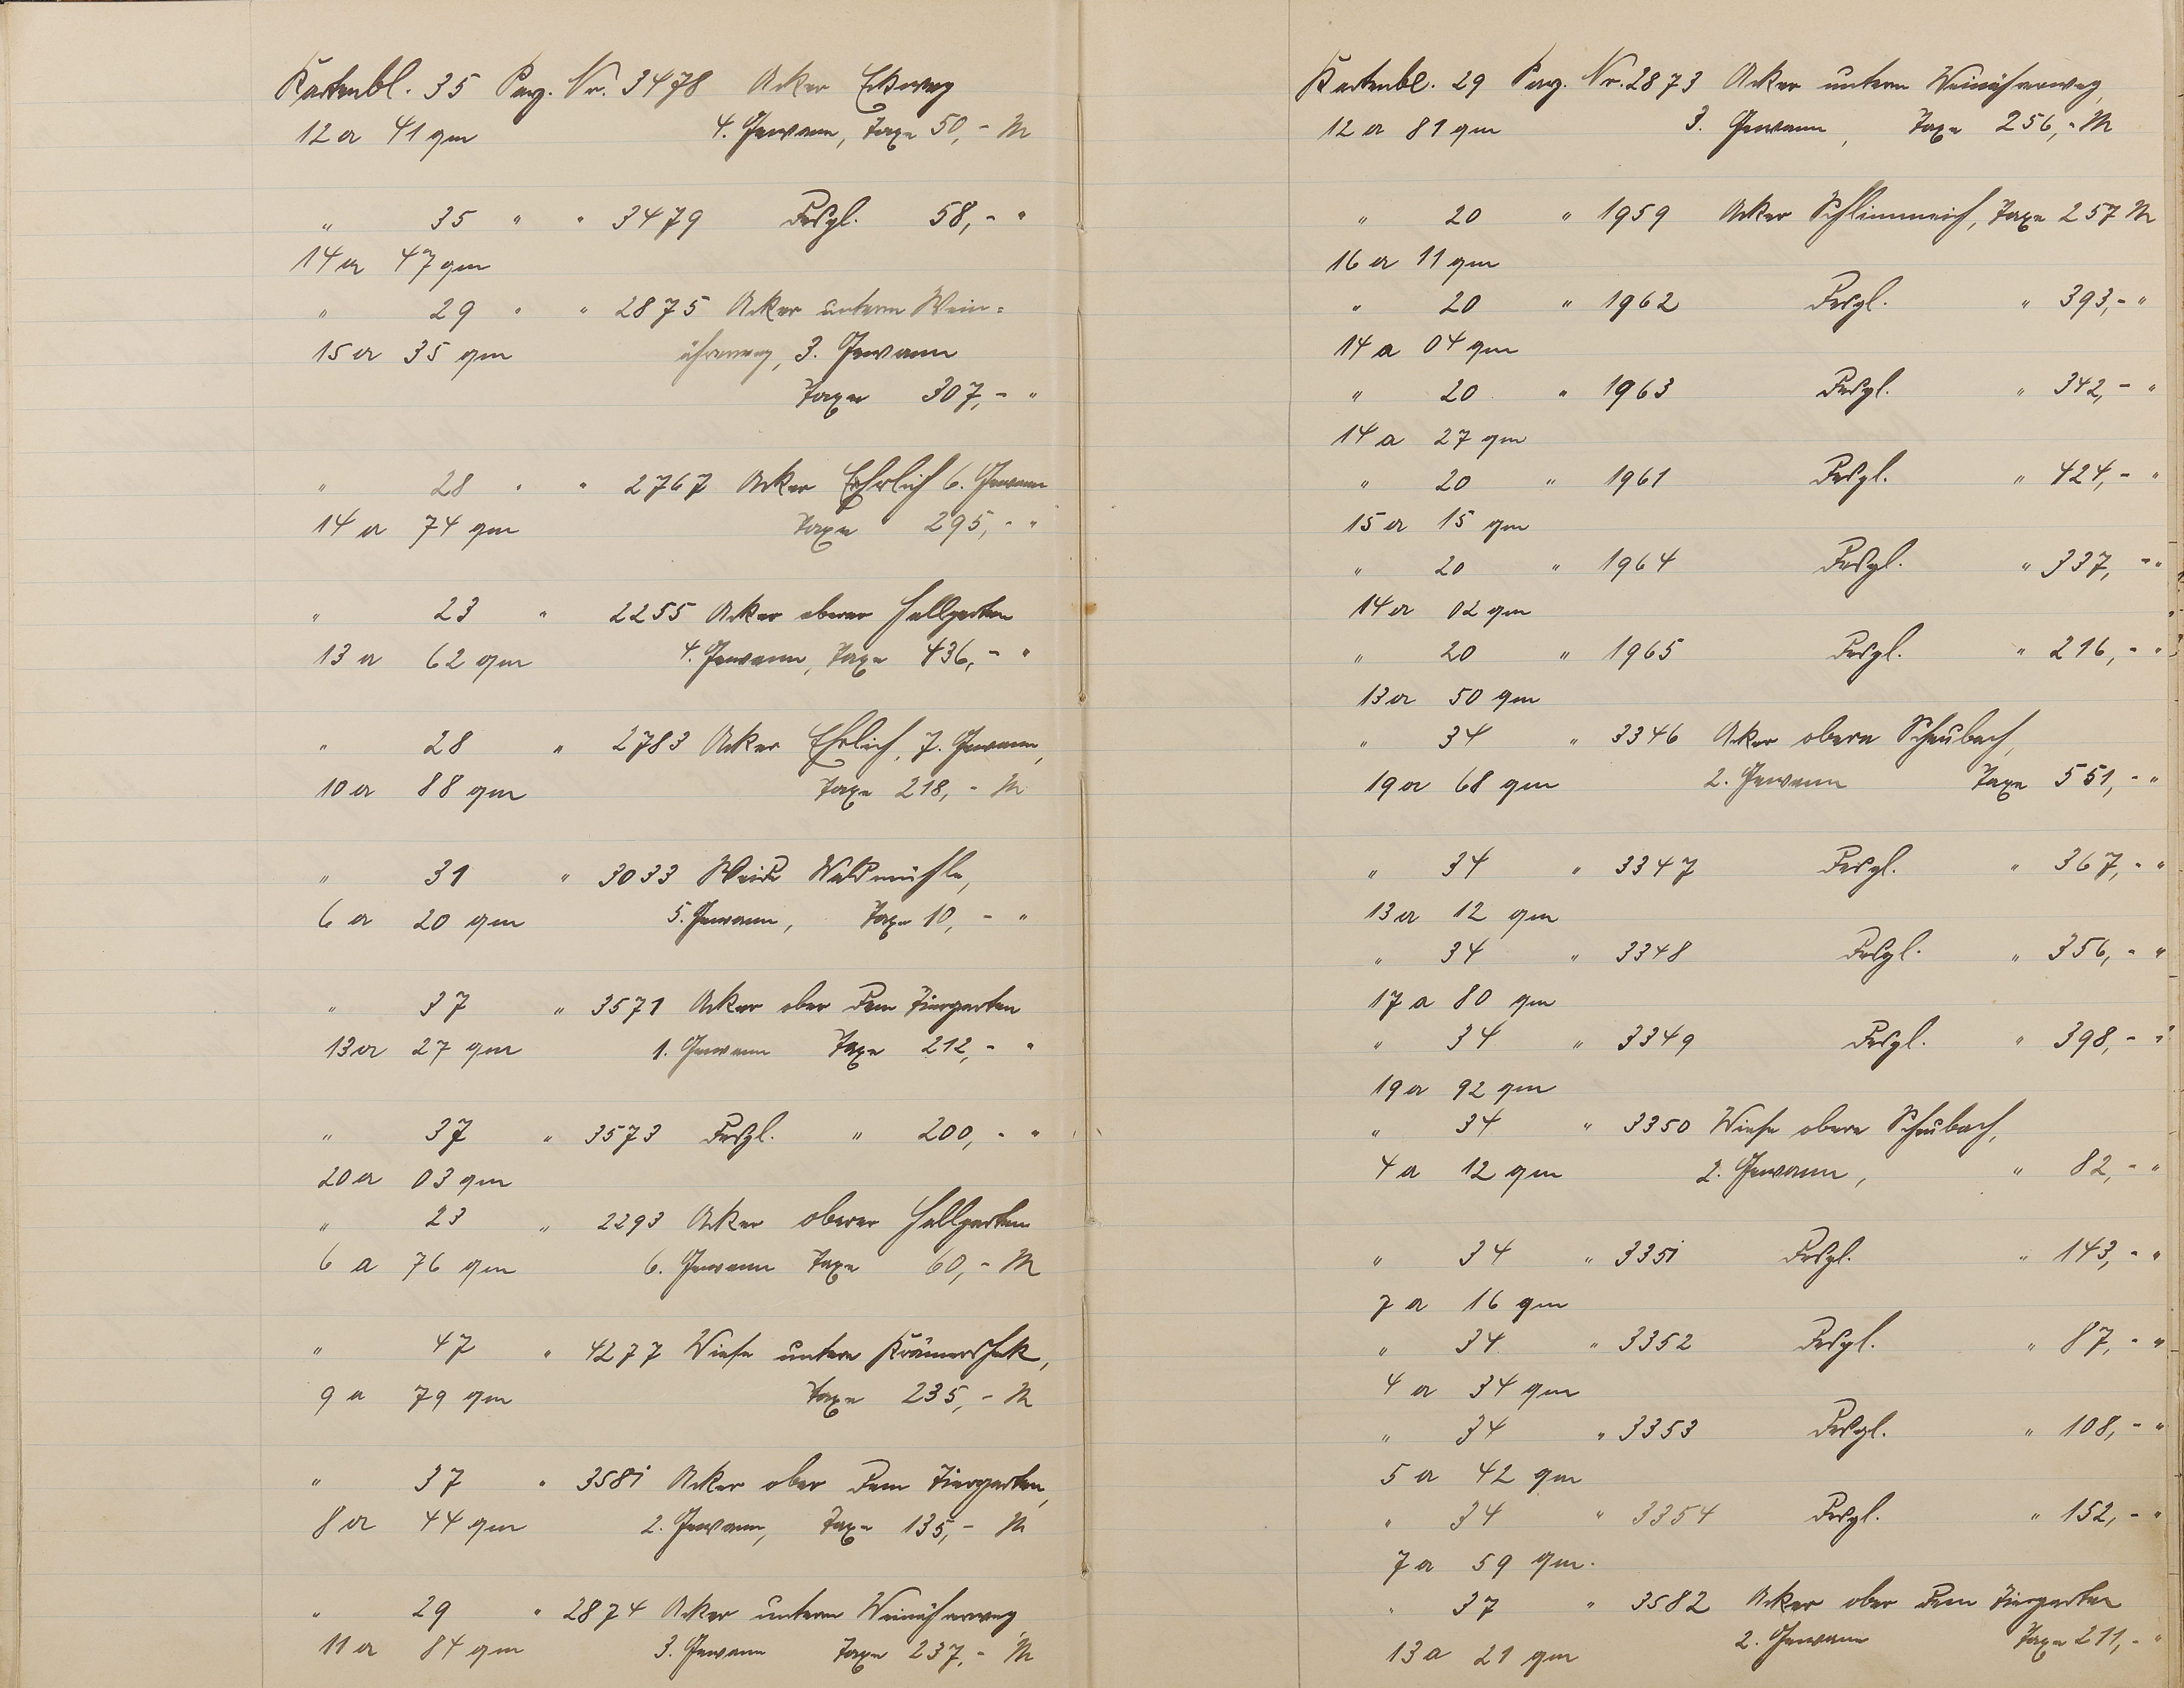 Kartenbl. 35 Parz. Nr. 3478 Acker Eckweg
12 a 41 qm 4. Gewann, Taxe 50,- M
" 35 " " 3479 Desgl. 58,- "
14 a 47 qm
" 29 " " 2875 Acker unterm Wein=
15 a 35 qm ährerweg, 3. Gewann
Taxe 307,- "
" 28 " " 2767 Acker Ehrlich 6. Gewann
14 a 74 qm Taxe 295,- "
" 23 " 2255 Acker oberer Hellgarten
13 a 62 qm 4. Gewann, Taxe 436,- "
" 28 " 2783 Acker Ehrlich, 7. Gewann,
10 a 88 qm Taxe 218,- M
" 31 " 3033 Weide Waldmühle,
6 a 20 qm 5. Gewann, Taxe 10,- "
" 37 " 3571 Acker ober dem Tiergarten
13 a 27 qm 1. Gewann Taxe 212,- "
" 37 " 3573 Desgl. " 200,- "
20 a 03 qm
" 23 " 2293 Acker oberer Hellgarten
6 a 76 qm 6. Gewann Taxe 60,- M
" 47 " 4277 Wiese untere Krämersheck,
9 a 79 qm Taxe 235,- M
" 37 " 3581 Acker ober dem Tiergarten,
8 a 44 qm 2. Gewann, Taxe 135,- M
" 29 " 2874 Acker unterm Weinährerweg
11 a 84 qm 3. Gewann Taxe 237,- M
Kartenbl. 29 Parz. Nr. 2873 Acker unterm Weinährerweg,
12 a 81 qm 3. Gewann, Taxe 256,- M
" 20 " 1959 Acker Schlimmeich, Taxe 257 M
16 a 11 qm
" 20 " 1962 Desgl. " 393,- "
14 a 04 qm
" 20 " 1963 Desgl. " 342,- "
14 a 27 qm
" 20 " 1961 Desgl. " 424,- "
15 a 15 qm
" 20 " 1964 Desgl. " 337,- "
14 a 02 qm
" 20 " 1965 Desgl. " 216,- "
13 a 50 qm
" 34 " 3346 Acker obere Scheubach,
19 a 68 qm 2. Gewann Taxe 551,- "
" 34 " 3347 Desgl. " 367,- "
13 a 12 qm
" 34 " 3348 Desgl. " 356,- "
17 a 80 qm
" 34 " 3349 Desgl. " 398,- "
19 a 92 qm
" 34 " 3350 Wiese obere Scheubach,
4 a 12 qm 2. Gewann, " 82,- "
" 34 " 3351 Desgl. " 143,- "
7 a 16 qm
" 34 " 3352 Desgl. " 87,- "
4 a 34 qm
" 34 " 3353 Desgl. " 108,- "
5 a 42 qm
" 34 " 3354 Desgl. " 152,- "
7 a 59 qm.
" 37 " 3582 Acker ober dem Tiergarten
13 a 21 qm 2. Gewann Taxe 211,- "